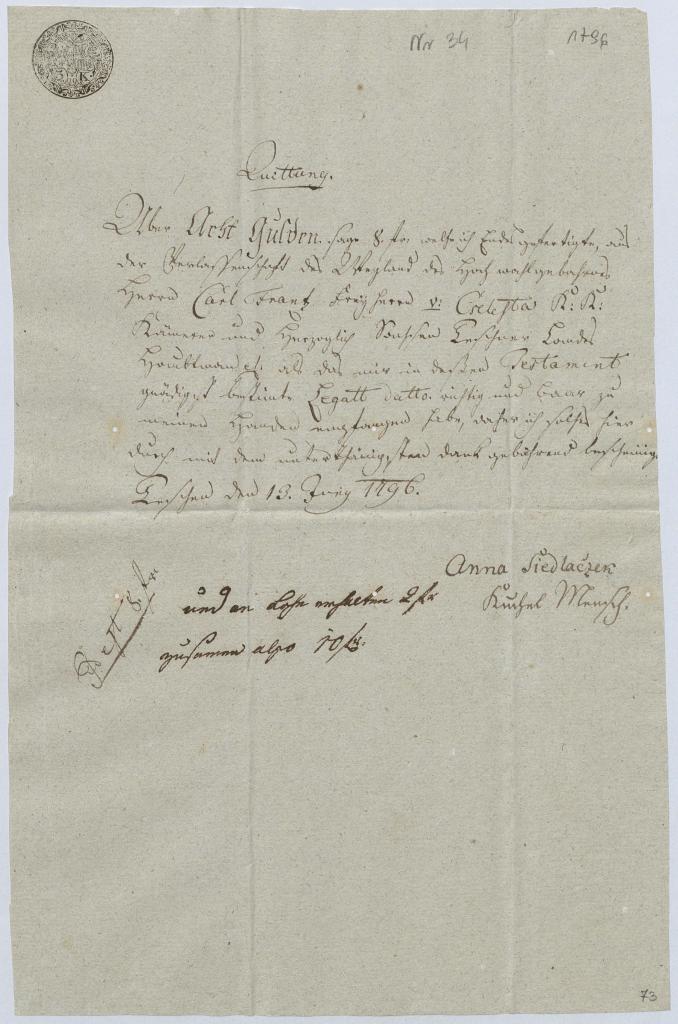 Nr 34
1796
3 K
Quittung.
Über Acht Gulden. sage 8. fr. welche ich Endes gefertigte, aus
der Verlassenschaft des Weyland des Hoch wohlgebohrnen
Herrn Carl Frantz Freyherrn v: Czelesta K: K:
Kämerer und Herzoglich Saxschen Teschner Landes
Haubtman als das mir in dessen Testament
gnädigst bestimte Legatt datto richtig und baar zu
meinen Handen empfangen habe, daher ich solches hier
durch mit dem unterthänigsten dank gebührend bescheinige
Teschen den 13. Juny 1796.
Anna Siedlaczek
Kuchel Mensch.
8 fr
und an Lohn erhalten 2 fr
zusamen also 10 fr:
73